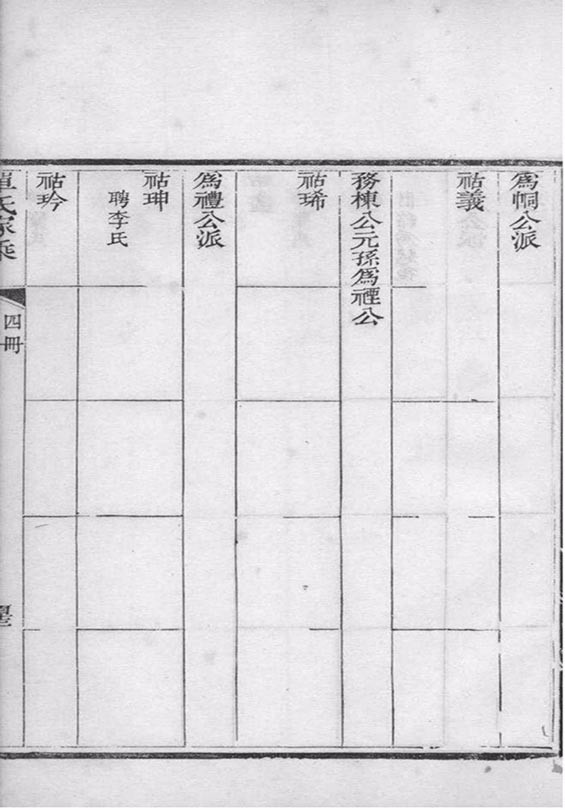 為㤏公派
祜義
務棟公元孫為禋公
祜琋
為禮公派
祜珅
聘李氏
祜玪
氏家乘
四冊